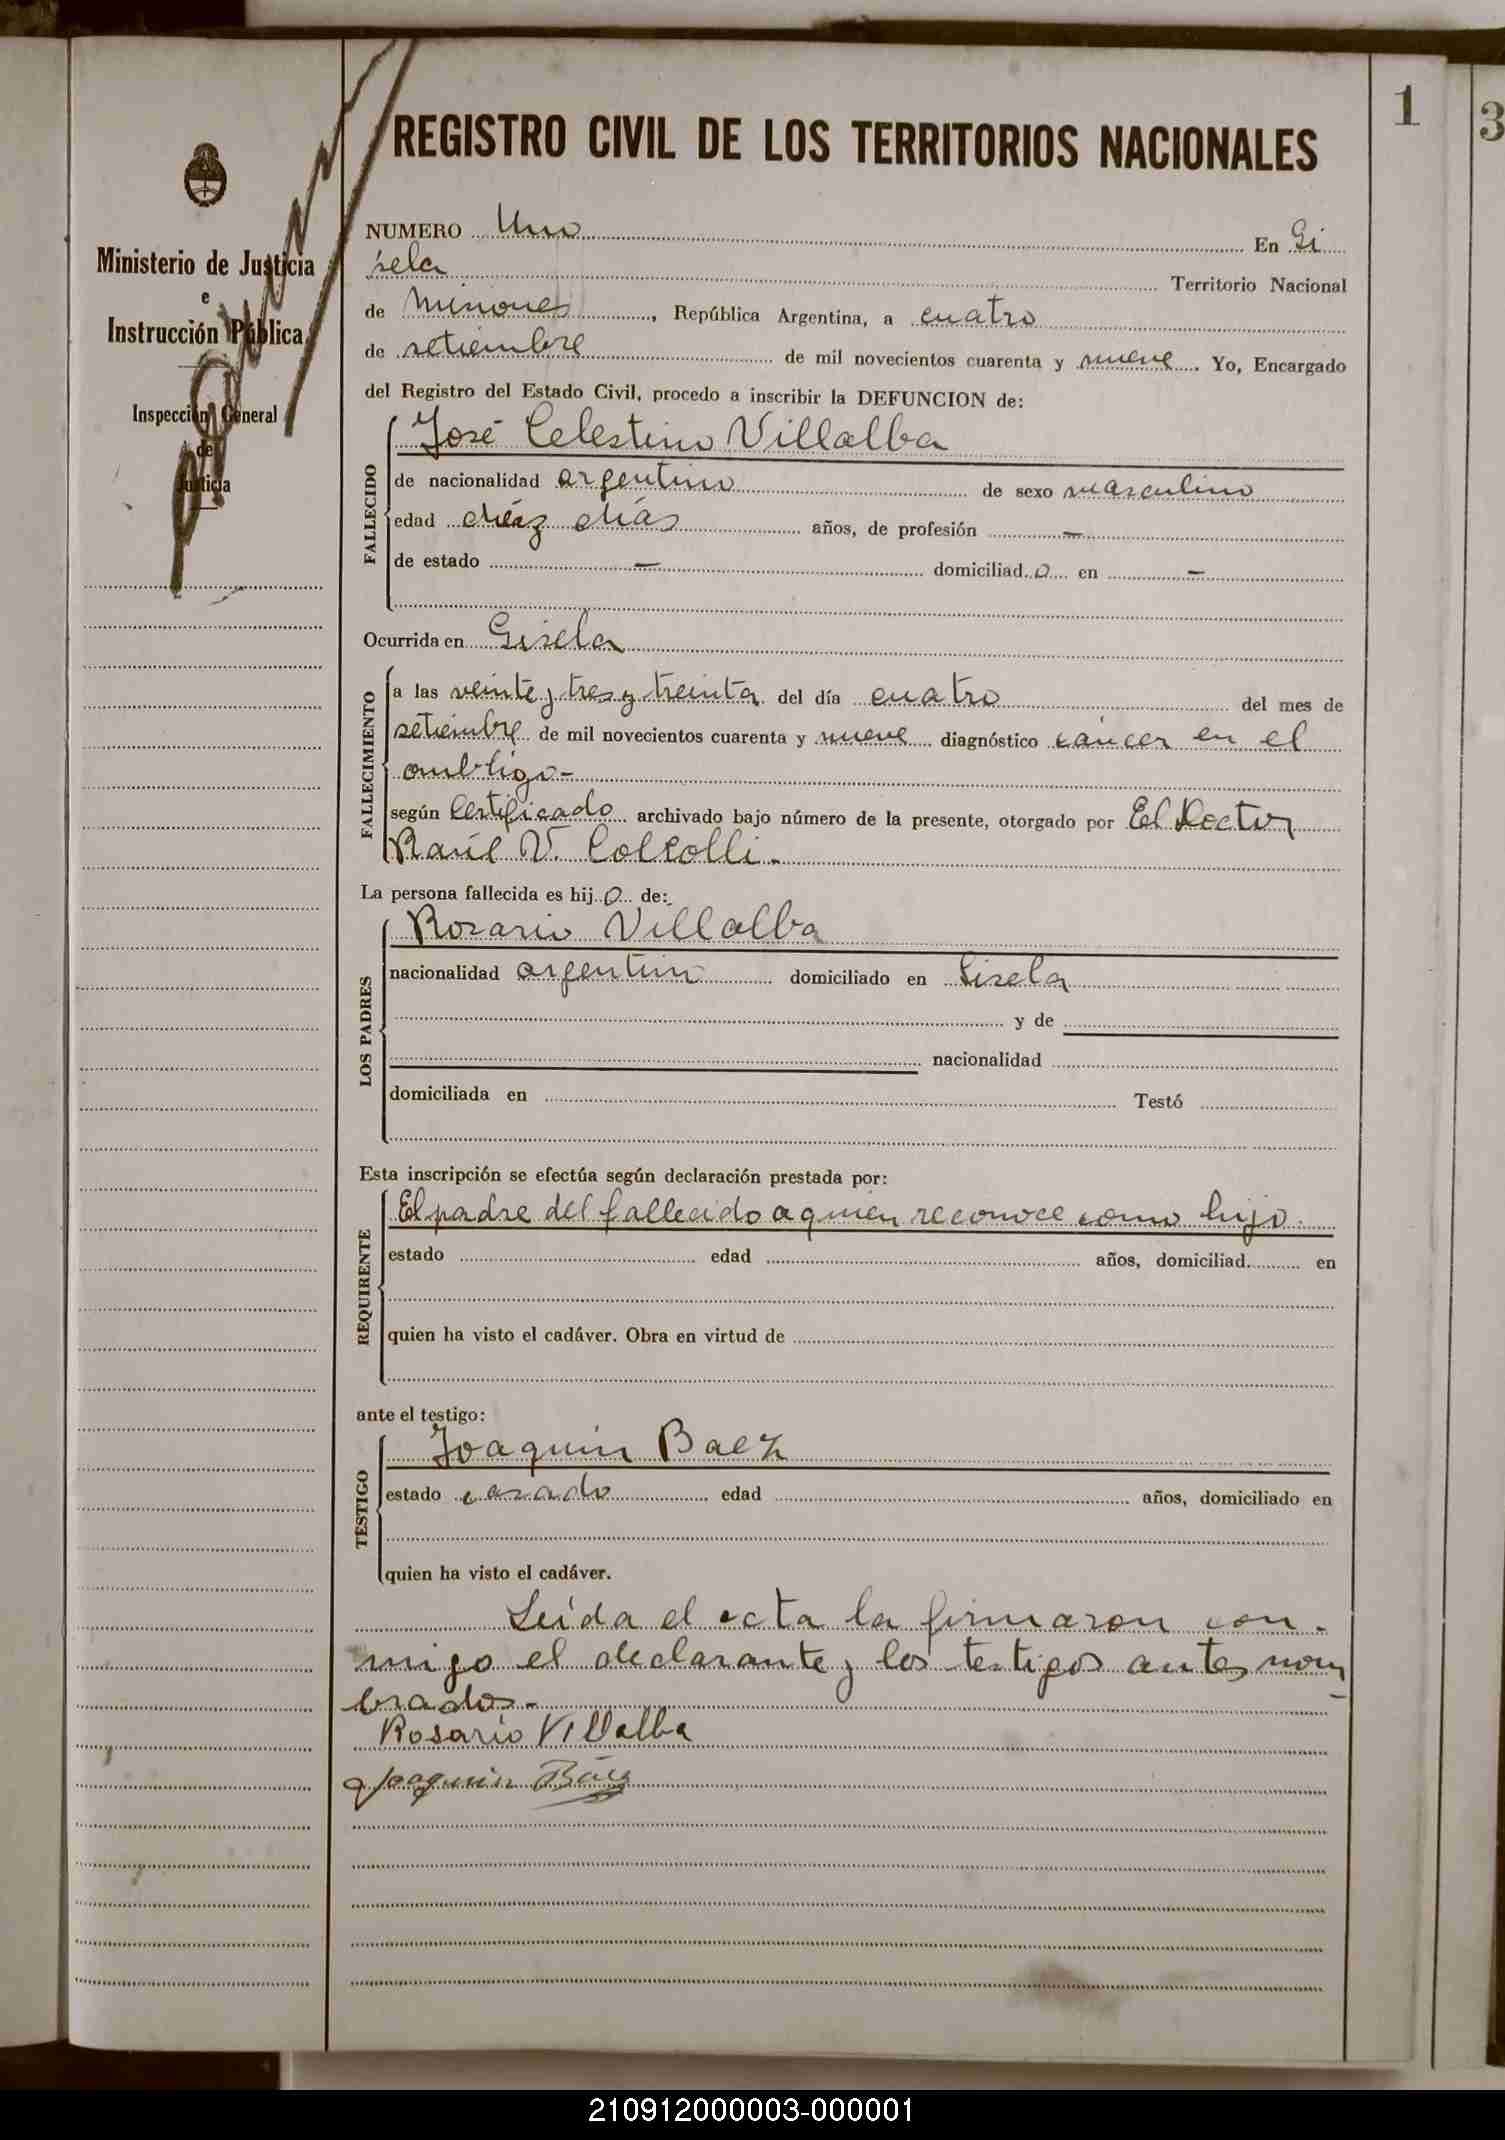 1
3
REGISTRO CIVIL DE LOS TERRITORIOS NACIONALES
Ministerio de Justicia
e
Instrucción Pública
Inspección General
de
Justicia
NUMERO Uno En Gi
sela Territorio Nacional
de Misiones, República Argentina, a cuatro
de setiembre de mil novecientos cuarenta y nueve. Yo, Encargado
del Registro del Estado Civil, procedo a inscribir la DEFUNCION de:
FALLECIDO
José Celestino Villalba
de nacionalidad argentino de sexo masculino
edad diéz días años, de profesión —
de estado — domiciliad o en —
Ocurrida en Gisela
FALLECIMIENTO
a las veinte y tres y treinta del día cuatro del mes de
setiembre de mil novecientos cuarenta y nueve diagnóstico cáncer en el
ombligo-
según Certificado archivado bajo número de la presente, otorgado por El Doctor
Raúl V.
La persona fallecida es hij o de:
LOS PADRES
Rosario Villalba
nacionalidad argentino domiciliado en Gisela
y de
nacionalidad
domiciliada en Testó
Esta inscripción se efectúa según declaración prestada por:
REQUIRENTE
El padre del fallecido a quien reconoce como hijo.
estado edad años, domiciliad en
quien ha visto el cadáver. Obra en virtud de
ante el testigo:
TESTIGO
Joaquin Baez
estado casado edad años, domiciliado en
quien ha visto el cadáver.
Leída el acta la firmaron con-
migo el declarante y los testigos antes nom
brados.-
Rosario Villalba
Joaquin Báez
210912000003-000001